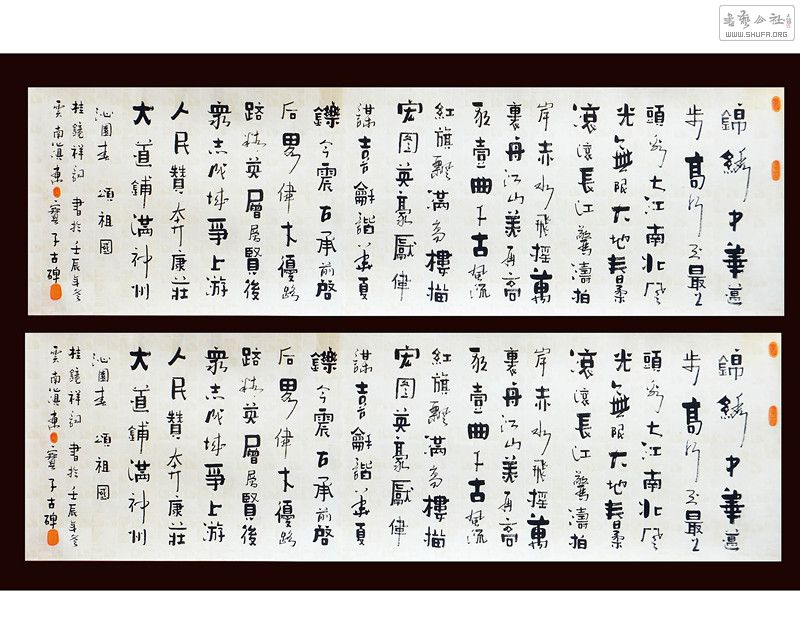 書藝公社
WWW.SHUFA.ORG
錦繡中華邁
步高行至最上
頭看大江南北風
光無限大地
滾滾長江驚濤拍
岸赤水飛搖萬
裏舟江山美再高
歌壹曲千古風流
紅旗飄滿高樓描
宏圖英豪獻偉
謀喜看龢諧華夏
鑠今震古承前啓
后偉優
英層層賢後
衆志成城爭上游
人民贊康莊
大道鋪滿神州
沁園春 頌祖國
桂鏡祥詞 書於壬辰年冬
雲南滇東 子古碑
錦繡中華邁
步高行至最上
頭看大江南北風
光無限大地
滾滾長江驚濤拍
岸赤水飛搖萬
裏舟江山美再高
歌壹曲千古風流
紅旗飄滿高樓描
宏圖英豪獻偉
謀喜看龢諧華夏
鑠今震古承前啓
后偉優
英層層賢後
衆志成城爭上游
人民贊康莊
大道鋪滿神州
沁園春 頌祖國
桂鏡祥詞 書於壬辰年冬
雲南滇東 子古碑